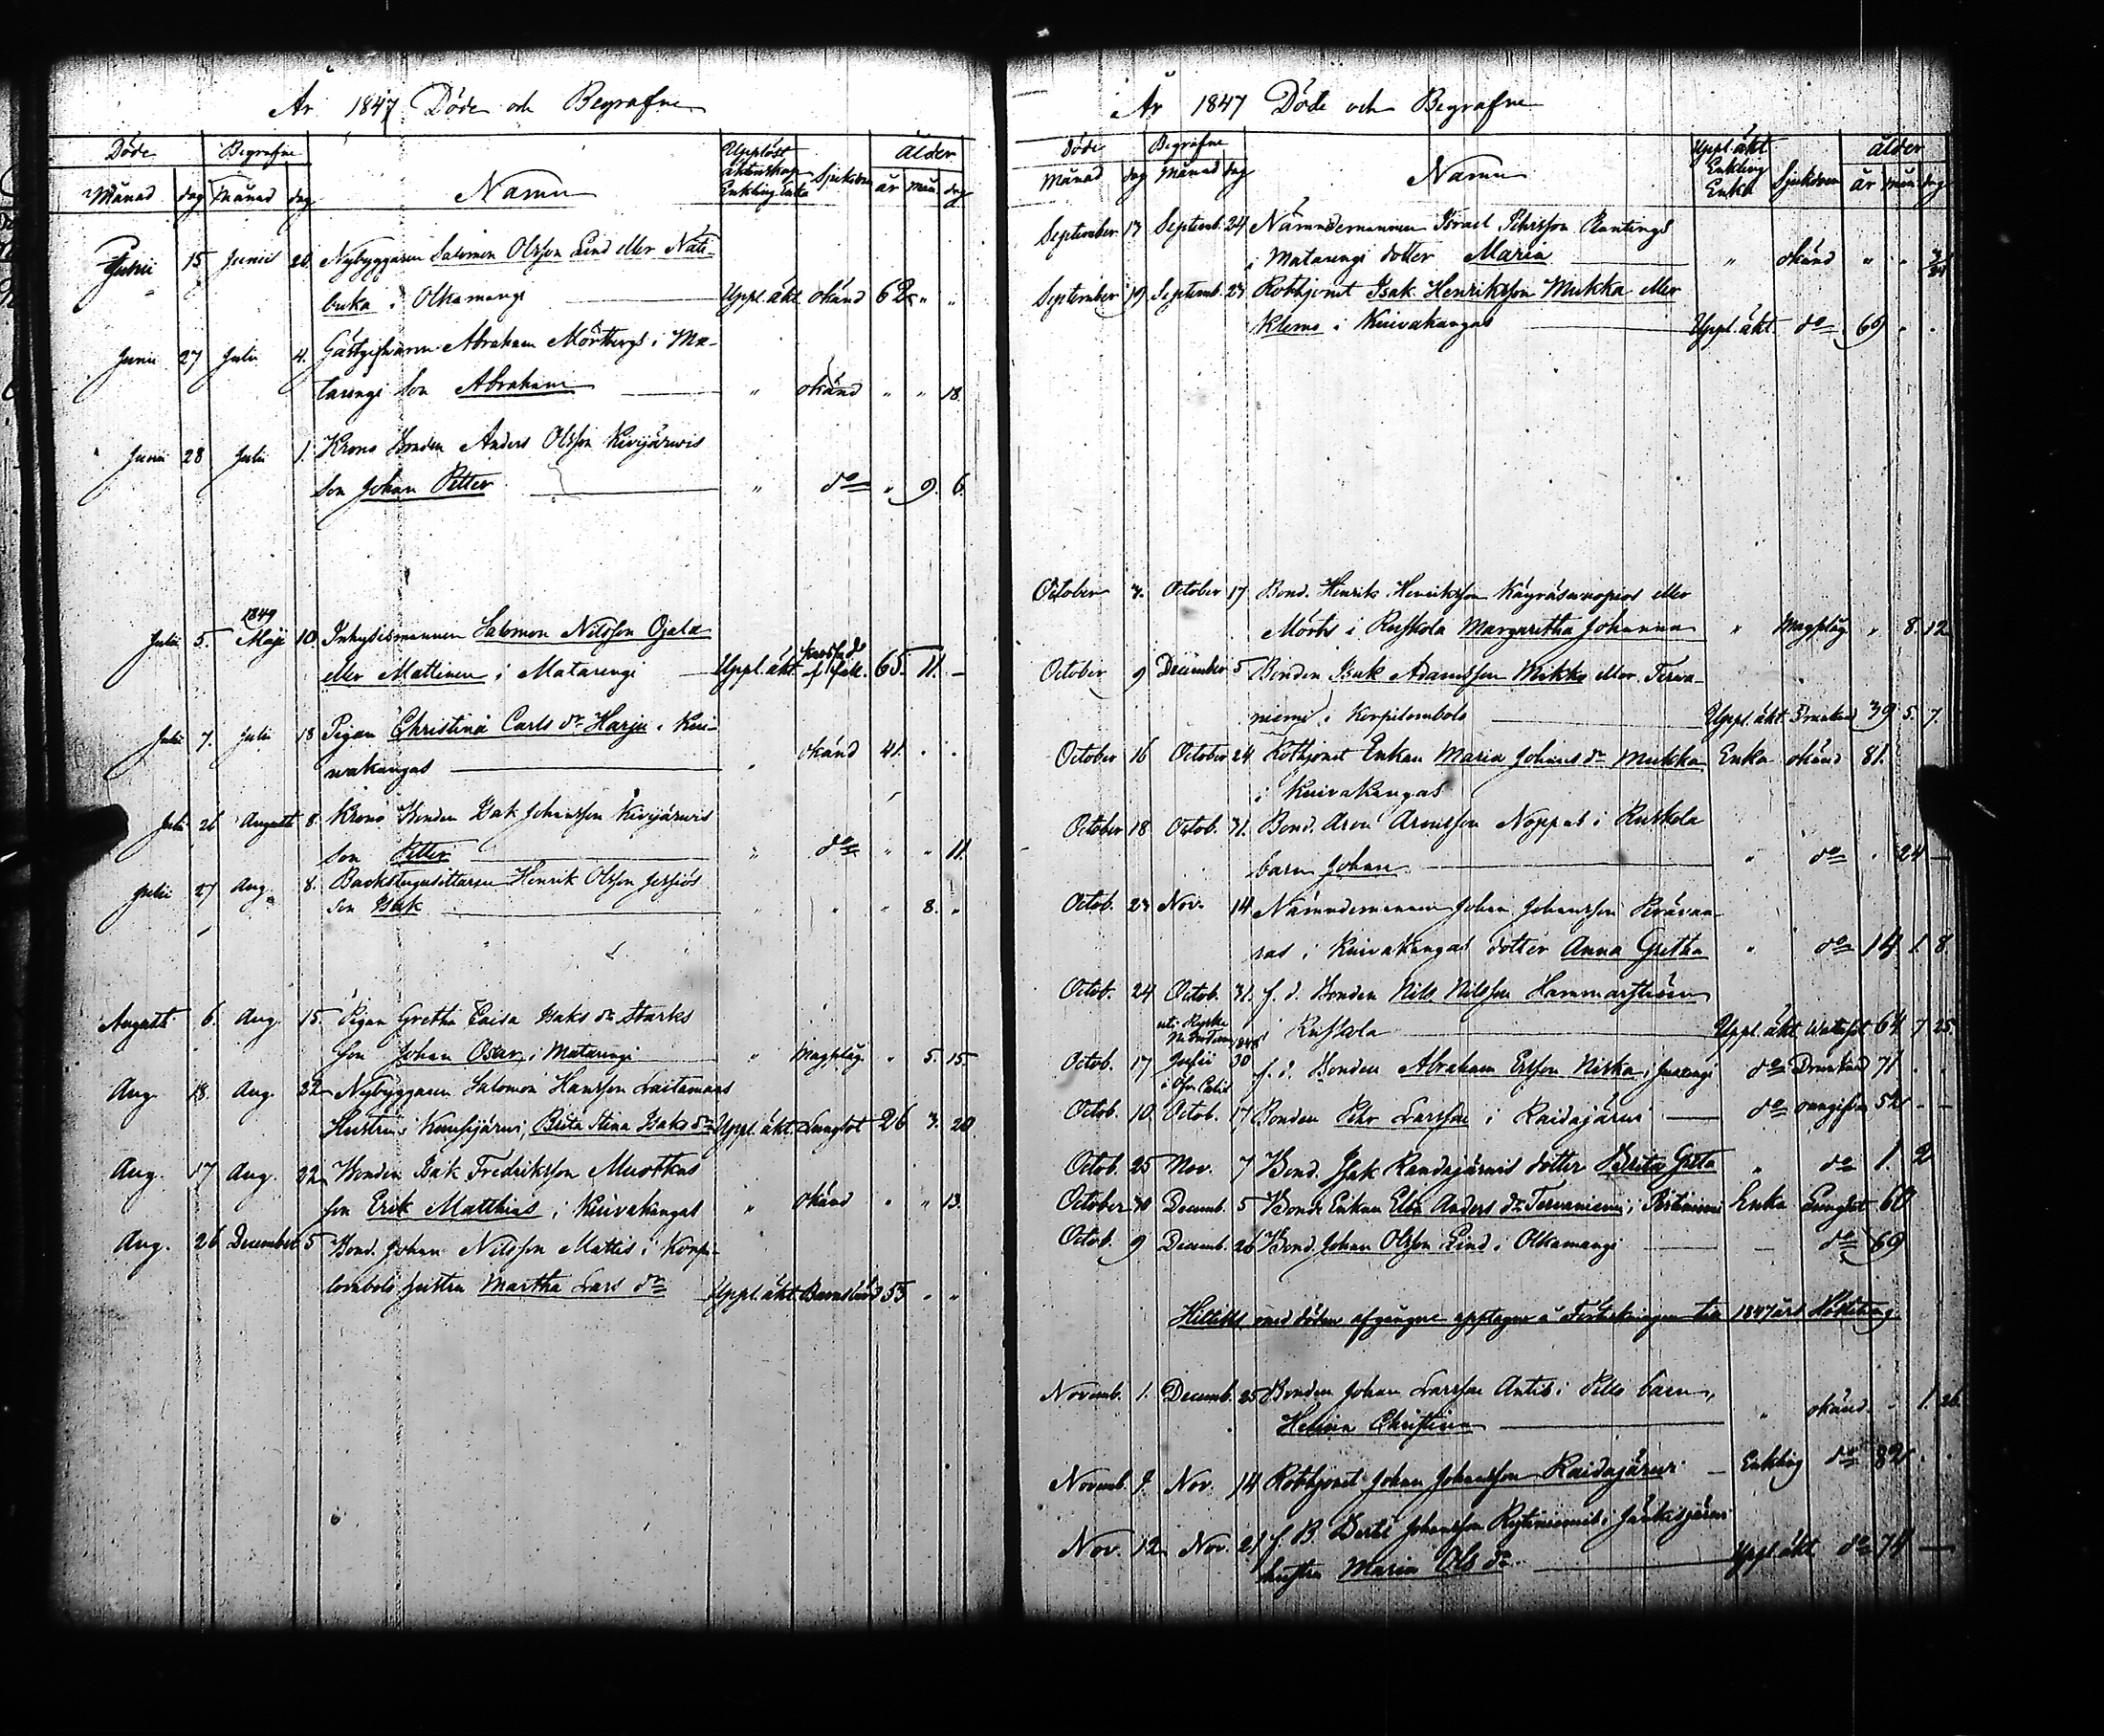 År 1847 Döde och Begrafne
Döde Begrafne Namn Upplöst äktenskap Enkling Enka Sjukdom ålder
Månad dag Månad dag år mån. dag
Junii 15 Junii 20 Nybyggaren Salomon Olsson Lind eller
i Olkamangi Uppl. äkt okänd 62 " "
Junii 27 Julii 4. Gästgifvaren Abraham Mörtbergs i Ma-
tarengi Son Abraham " okänd " " 18.
Junii 28 Julii 1. Krono Bonden Anders Olsson Kivijärvis
Son Johan Petter " do " 9. 6.
1849
Julii 5. Maji 10. Inhysesmannen Salomon Nilsson Ojala
eller Mattinen i Matarengi Uppl. äkt. 65. 11. –
Julii 7. Julii 18 Pigan Christina Carls dr Harju i Kui-
wakangas " okänd 41. " "
Julii 26 Augusti 8. Krono Bonden Isak Johansson Kivijärvis
Son Petter " do " " 11.
Julii 27 Aug. 8. Backstugusittaren Henrik Olsson
son Isak " " " 8. "
Augusti 6. Aug. 15. Pigan Gretha Caisa Isaks dr Starks
Son Johan Oscar i Matarengi " Magplåg " 5. 15.
Aug. 18. Aug. 22 Nybyggaren Salomon Hansson Laitamaas
Hustru i Kuusijärvi, Brita Stina Isaks dr Uppl. äkt. Lungsot 26 3. 20
Aug. 17 Aug. 22 Bonden Isak Fredriksson Muotkas
son Erik Matthias i Kuivakangas " okänd " " 13.
Aug. 26 December 5 Bond. Johan Nilsson Mattis i Korpi-
lombolo hustru Martha Lars dr Uppl. äkt. Barnsbörd 35 " "
År 1847 Döde och Begrafne
Döde Begrafne Namn Uppl. äkt Enkling Enka Sjukdom ålder
Månad dag Månad dag år mån dag
September 13 Septemb. 24 Nämndemannen Israel Pehrsson Rantings
i Matarengi dotter Maria " okänd " "
September 19 Septemb. 23 Rothjonet Isak Henriksson Mukka eller
Klemo i Kuivakangas Uppl. äkt. do 69 " "
October 3. October 17 Bond. Henrik Henriksson eller
Mörtis i Ruskola Margaretha Johanna " Magplåg " 8. 12
October 9 December 5 Bonden Isak Adamsson Mikko eller Terva-
niemi i Korpilombolo Uppl. äkt. Drunknad 39 5. 7.
October 16 October 24 Rothjonet Enkan Maria Johans dr Mukka Enka okänd 81.
i Kuivakangas
October 18 Octob. 31. Bond. Aron Aronsson Noppas i Ruskola
barn Johan " do " 24 –
Octob. 23 Nov. 14 Nämndemannen Johan Johansson
i Kuivakangas dotter Anna Gretha " do 14 1. 8.
Octob. 24 Octob. 31. f. d. Bonden Nils Nilsson Hammarström
i Ruskola Uppl. äkt Wattusot 64 7 25
Octob. 17 Julii 30 f. d. Bonden Abraham Ersson Niska i Juoxengi do Drunknad 71
Octob. 10. Octob. 17 Bonden Pehr Larsson i Raidajärvi do onngifven 52 " –
Octob. 25 Nov. 7 Bond. Isak Randajärvis dotter Brita Greta " do 1. 2
October 30 Decemb. 5 Bonde Enkan Elsa Anders dr Tervaniemi i Enka Lungsot 60
Octob. 9 Decemb. 26 Bond. Johan Olsson Lind i Olkamangi – do 69
Hittills med döden afgångne upptagne å Förteckningen till 1847 års Hösteting
Novemb. 1. Decemb. 25 Bonden Johan Larsson Antis i Pello barn,
Helena Christina " okänd " 1. 26.
Novemb. 7. Nov. 14 Rothjonet Johan Johansson Raidajärvi Enkling do 82 "
Nov. 12 Nov. 21 f. B Bertil Johansson i Jänkisjärvi
hustru Maria Ols dr Uppl. äkt do 74 –